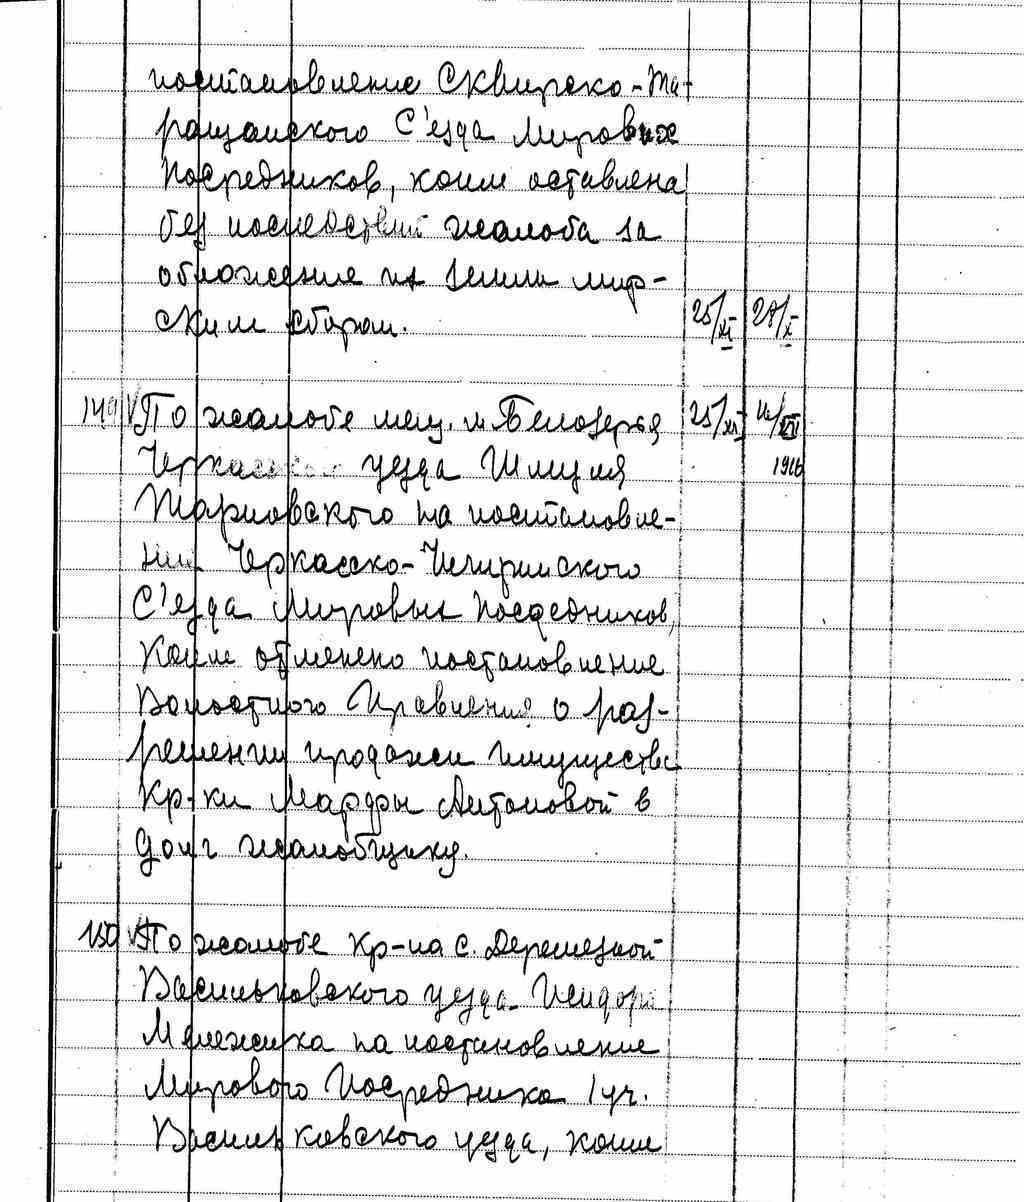 постановление Сквирско-Та-
ращанского С'езда Мировых
Посредников, коим оставлена
без последствий жалоба за
обложение их земли мир-
ским сбором. 25/XI 28/X
149 По жалобе мещ. м. Белозерья 25/XI
Черкасского уезда Шмуля 1916
Тарновского на постановле-
нии Черкасско-Чигиринского
С'езда Мировых Посредников,
Коим отменено постановление
Волостного Правления о раз-
решении продажи имущества
Кр-ки Марфы Антоновой в
долг жалобщику.
150 По жалобе Кр-на с. Деремезной
Васильковского уезда Исидора
на постановление
Мирового Посредника 1 уч.
Васильковского уезда, коим